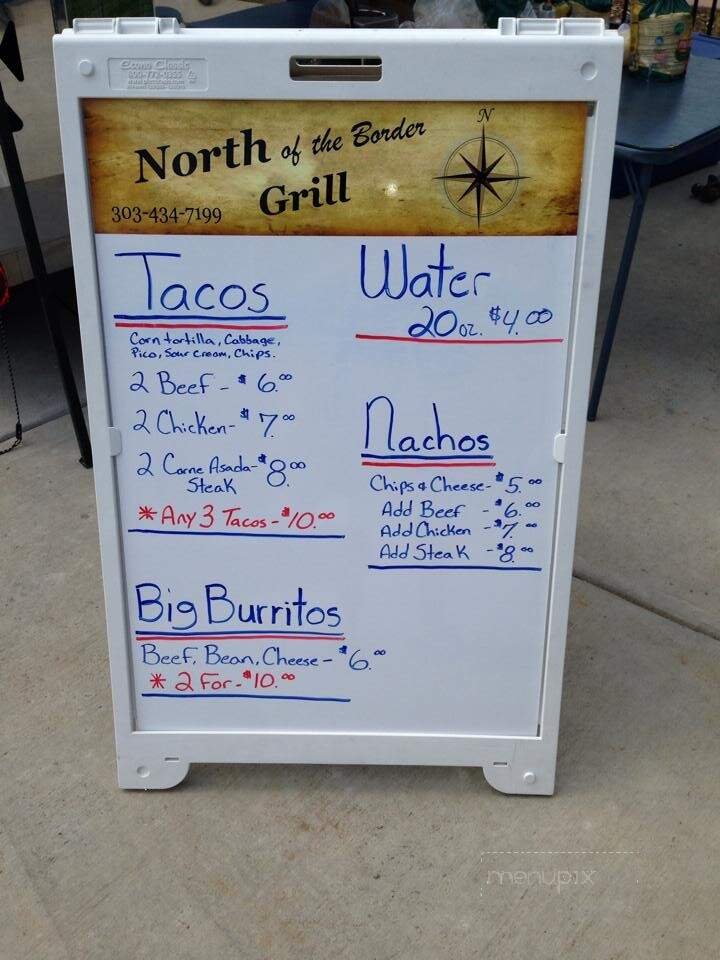 Econo Classic
North of the Border
Grill
303-434-7199
N
Tacos
Corn tortilla, Cabbage,
Pico, Sour cream, Chips.
2 Beef - $6.00
2 Chicken - $7.00
2 Carne Asada - $8.00
Steak
* Any 3 Tacos - $10.00
Big Burritos
Beef, Bean, Cheese - $6.00
* 2 For - $10.00
Water
20oz. $4.00
Nachos
Chips & Cheese - $5.00
Add Beef - $6.00
Add Chicken - $7.00
Add Steak - $8.00
menupix